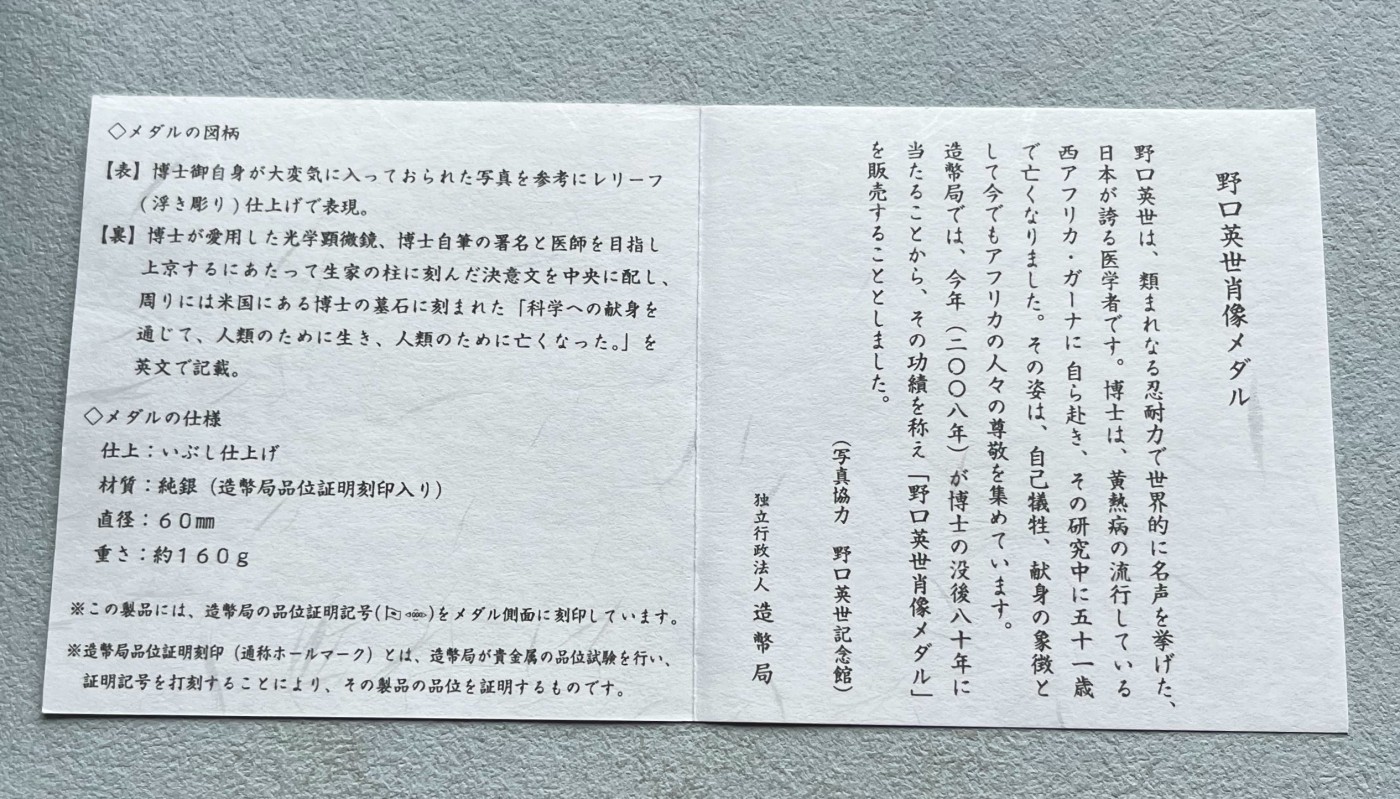 野口英世肖像メダル
野口英世は、類まれなる忍耐力で世界的に名声を挙げた、
日本が誇る医学者です。博士は、黄熱病の流行している
西アフリカ・ガーナに自ら赴き、その研究中に五十一歳
で亡くなりました。その姿は、自己犠牲、献身の象徴と
して今でもアフリカの人々の尊敬を集めています。
造幣局では、今年（二〇〇八年）が博士の没後八十年に
当たることから、その功績を称え「野口英世肖像メダル」
を販売することとしました。
（写真協力　野口英世記念館）
独立行政法人 造幣局
◇メダルの図柄
【表】博士御自身が大変気に入っておられた写真を参考にレリーフ
(浮き彫り)仕上げで表現。
【裏】博士が愛用した光学顕微鏡、博士自筆の署名と医師を目指し
上京するにあたって生家の柱に刻んだ決意文を中央に配し、
周りには米国にある博士の墓石に刻まれた「科学への献身を
通じて、人類のために生き、人類のために亡くなった。」を
英文で記載。
◇メダルの仕様
仕上：いぶし仕上げ
材質：純銀（造幣局品位証明刻印入り）
直径：６０㎜
重さ：約１６０ｇ
※この製品には、造幣局の品位証明記号( )をメダル側面に刻印しています。
※造幣局品位証明刻印（通称ホールマーク）とは、造幣局が貴金属の品位試験を行い、
証明記号を打刻することにより、その製品の品位を証明するものです。